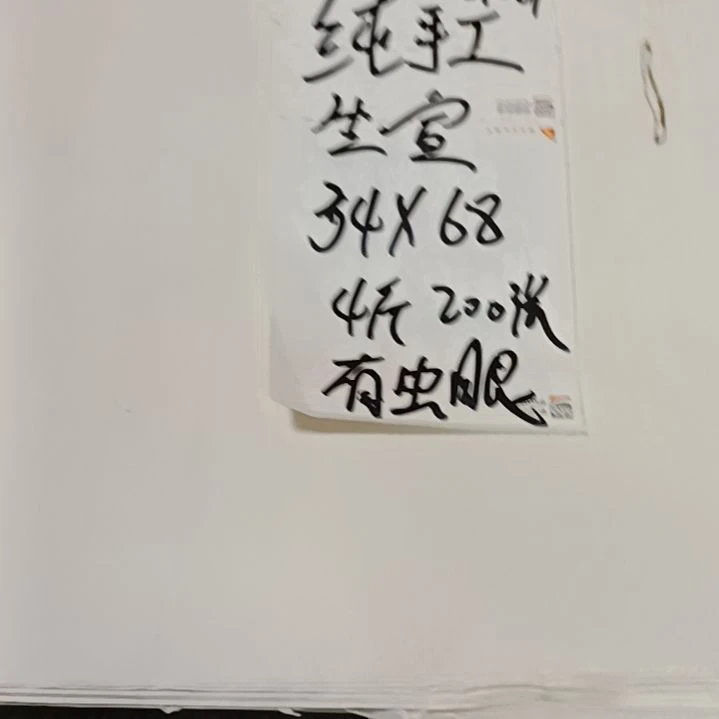 纯手工
生宣
34X68
4斤 200张
有虫眼